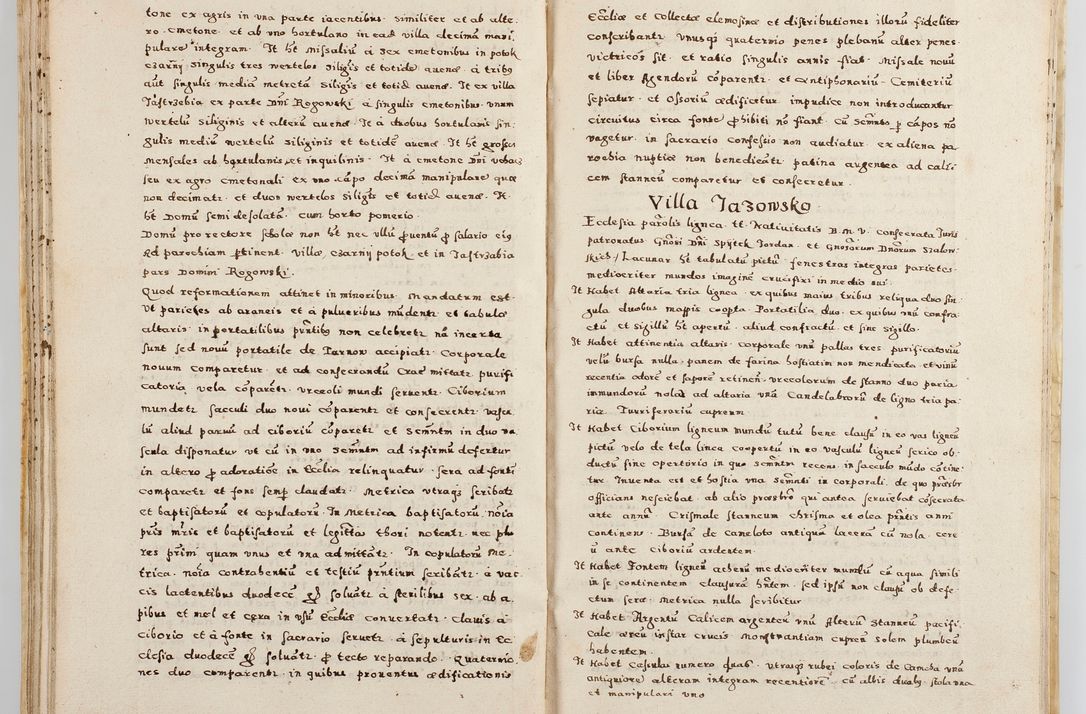 tone ex agris in una parte iacentibus. similiter et ab alte
ro cmetone. et ab uno hortulano in ead villa decimã mani
pularẽ integram. It ht Missaliũ â sex cmetonibus in potok
czarnÿ singulis tres wertelos siliginis et totidẽ auenæ. â tribus
aũt singulis mediã metretã siliginis et totid. auenæ. It ex villa
Jastrzebia ex parte Dñi Rogowski â singulis cmetonibus unum
wertelũ siliginis et alterũ auenæ. It â duobus hortulanis sin
gulis mediũ wertelũ siliginis et totidẽ auenæ. It ht grossos
mensales ab hortulanis et inquilinis. It â cmetone Dñi
seu ex agro cmetonali ex uno cãpo decimã manipularẽ quæ
non decimatʳ. et duos wertelos siliginis et totidẽ auenæ. It
ht Domũ semidesolatã. cum horto pomerio.
Domũ pro rectore scholæ non ht nec ullũ prouentũ pro salario eius
Ad parochiam pertinent. villa. czarnÿ potok et in Jastrzabia
pars Domini Rogowski.
Quod reformationem attinet in minoribus. Mandatum est
Ut parietes ab araneis et â pulueribus mũdentʳ et tabulæ
altaris in portatilibus prñtibus non celebretʳ nã incerta
sunt sed nouũ portatile de Tarnow accipiatʳ. Corporale
novum comparetur. et ad consecrandũ Crac mittatʳ purifi
catoria vela cõparentʳ. vrceoli mundi seruentʳ. Ciborium
mundetʳ sacculi duo noui cõparentʳ et consecrentʳ. vascu
lũ aliud paruũ ad ciboriũ cõparetʳ et Scmñtm in duo va
scula disponatur ut cũ in uno Scmñtm ad infirmũ defertur
in altero pro adoratiõe in Ecclia relinquatur. sera ad fontẽ
comparetʳ et fons semper claudatʳ. Metrica vtraque scribatʳ
et baptisatorũ et copulatorũ. In Metrica baptisatorũ. nõia
pris mris et baptisatorũ et legittimi thori notentʳ. nec plu
res prim quam unus et una admittãtʳ. In copulatorũ Me
trica. nõia contrahentiũ et testiũ prñtium scribãtʳ. â vac
cis lactentibus duodecẽ soluatʳ â sterilibus sex. ab a
pibus et mel et cera in usũ Eccliæ conuertatʳ. Clauis â
ciborio et â fonte in sacrario seruetʳ. â sepulturis in Ec
clesia duodecẽ soluatʳ. pro tecto reparando. Quaternio
nes duo comparentʳ. in quibus prouentus ædificationis
Eccliæ et collectæ elemosinæ et distributiones illorũ fideliter
conscribantʳ. unusque quaternio penes plebanũ alter penes
victricos sit. et ratio singulis annis fiat. Missale nouũ
et liber Agendorũ cõparentʳ. et Antiphonariũ. Cemiteriũ
sepiatur. et Ossoriũ ædificetur. impudicæ non introducantur
circuitus circa fontẽ prohibiti nõ fiant. cũ Scmñto per cãpos nõ
vagetur. in sacrario confessio non audiatur. ex aliena pa
rochia nuptiæ non benedicãtʳ patina argentea ad cali
cem stanneũ comparetur et consecretur.
Villa Jazowsko.
Ecclesia parõlis lignea. tt. Natiuitatis B. M. V. consecrata Juris
patronatus Gñosi Dñi Spÿtek Jordan. et Gnosarum Dñorum Szalow
skich. Lacunar ht tabulatũ pictũ. fenestras integras parietes
mediocriter mundos imaginẽ crucifixi in medio sui
It Habet Altaria tria lignea. ex quibus maius tribus reliqua duo sin
gula duobus mappis coopta. Portatilia duo. ex quibus unũ confra
ctũ. et sigillũ ht apertũ. aliud confractũ. et sine sigillo.
It Habet attinentia altaris. corporale unũ pallas tres purificatoriũ
velũ bursa nulla. panem de farina hostiatim non mendicata. et vinũ
recentia odorẽ et saporẽ retinen. vrceolorum de stanno duo paria
immundorũ nolas ad altaria unã Candelabrorũ de ligno tria pa
ria. Turriferariũ cuprem.
It Habet Ciborium ligneum mundũ tutũ bene clausũ in eo vas ligneũ
pictũ velo de tela linea coopertũ in eo vasculũ ligneũ serico ob
ductũ sine opertorio in quo Scmñtm recens in sacculo mũdo cõtine
tur. Inventa est et hostia una Scmñti in corporali. de quo præsbr
officians nesciebat. ab alio præsbro qui antea seruiebat cõsecrata
ante annũ. Crismale stanneum chrisma et olea prñtis anni
continens. Bursã de cameloto antiquã lacerã cũ nola. cere
ũ ante ciboriũ ardentem.
It Habet Fontem ligneũ mediocriter mundũ cũ aqua simili
in se continentem clausurã hñtem. sed ipsũ non clausũ ob defe
ctum seræ. Metrica nulla scribitur
It Habet Argentũ Calicem argenteũ unũ Alterũ stanneũ pacifi
cale æreũ instar crucis Monstrantiam cupreã solem plumbeũ
habentem.
It Habet Casulas numero quas. utraque rubei coloris de Camcha unã
antiquiorẽ alteram integram recentiorẽ. cũ albis duabus stola una
et manipulari uno